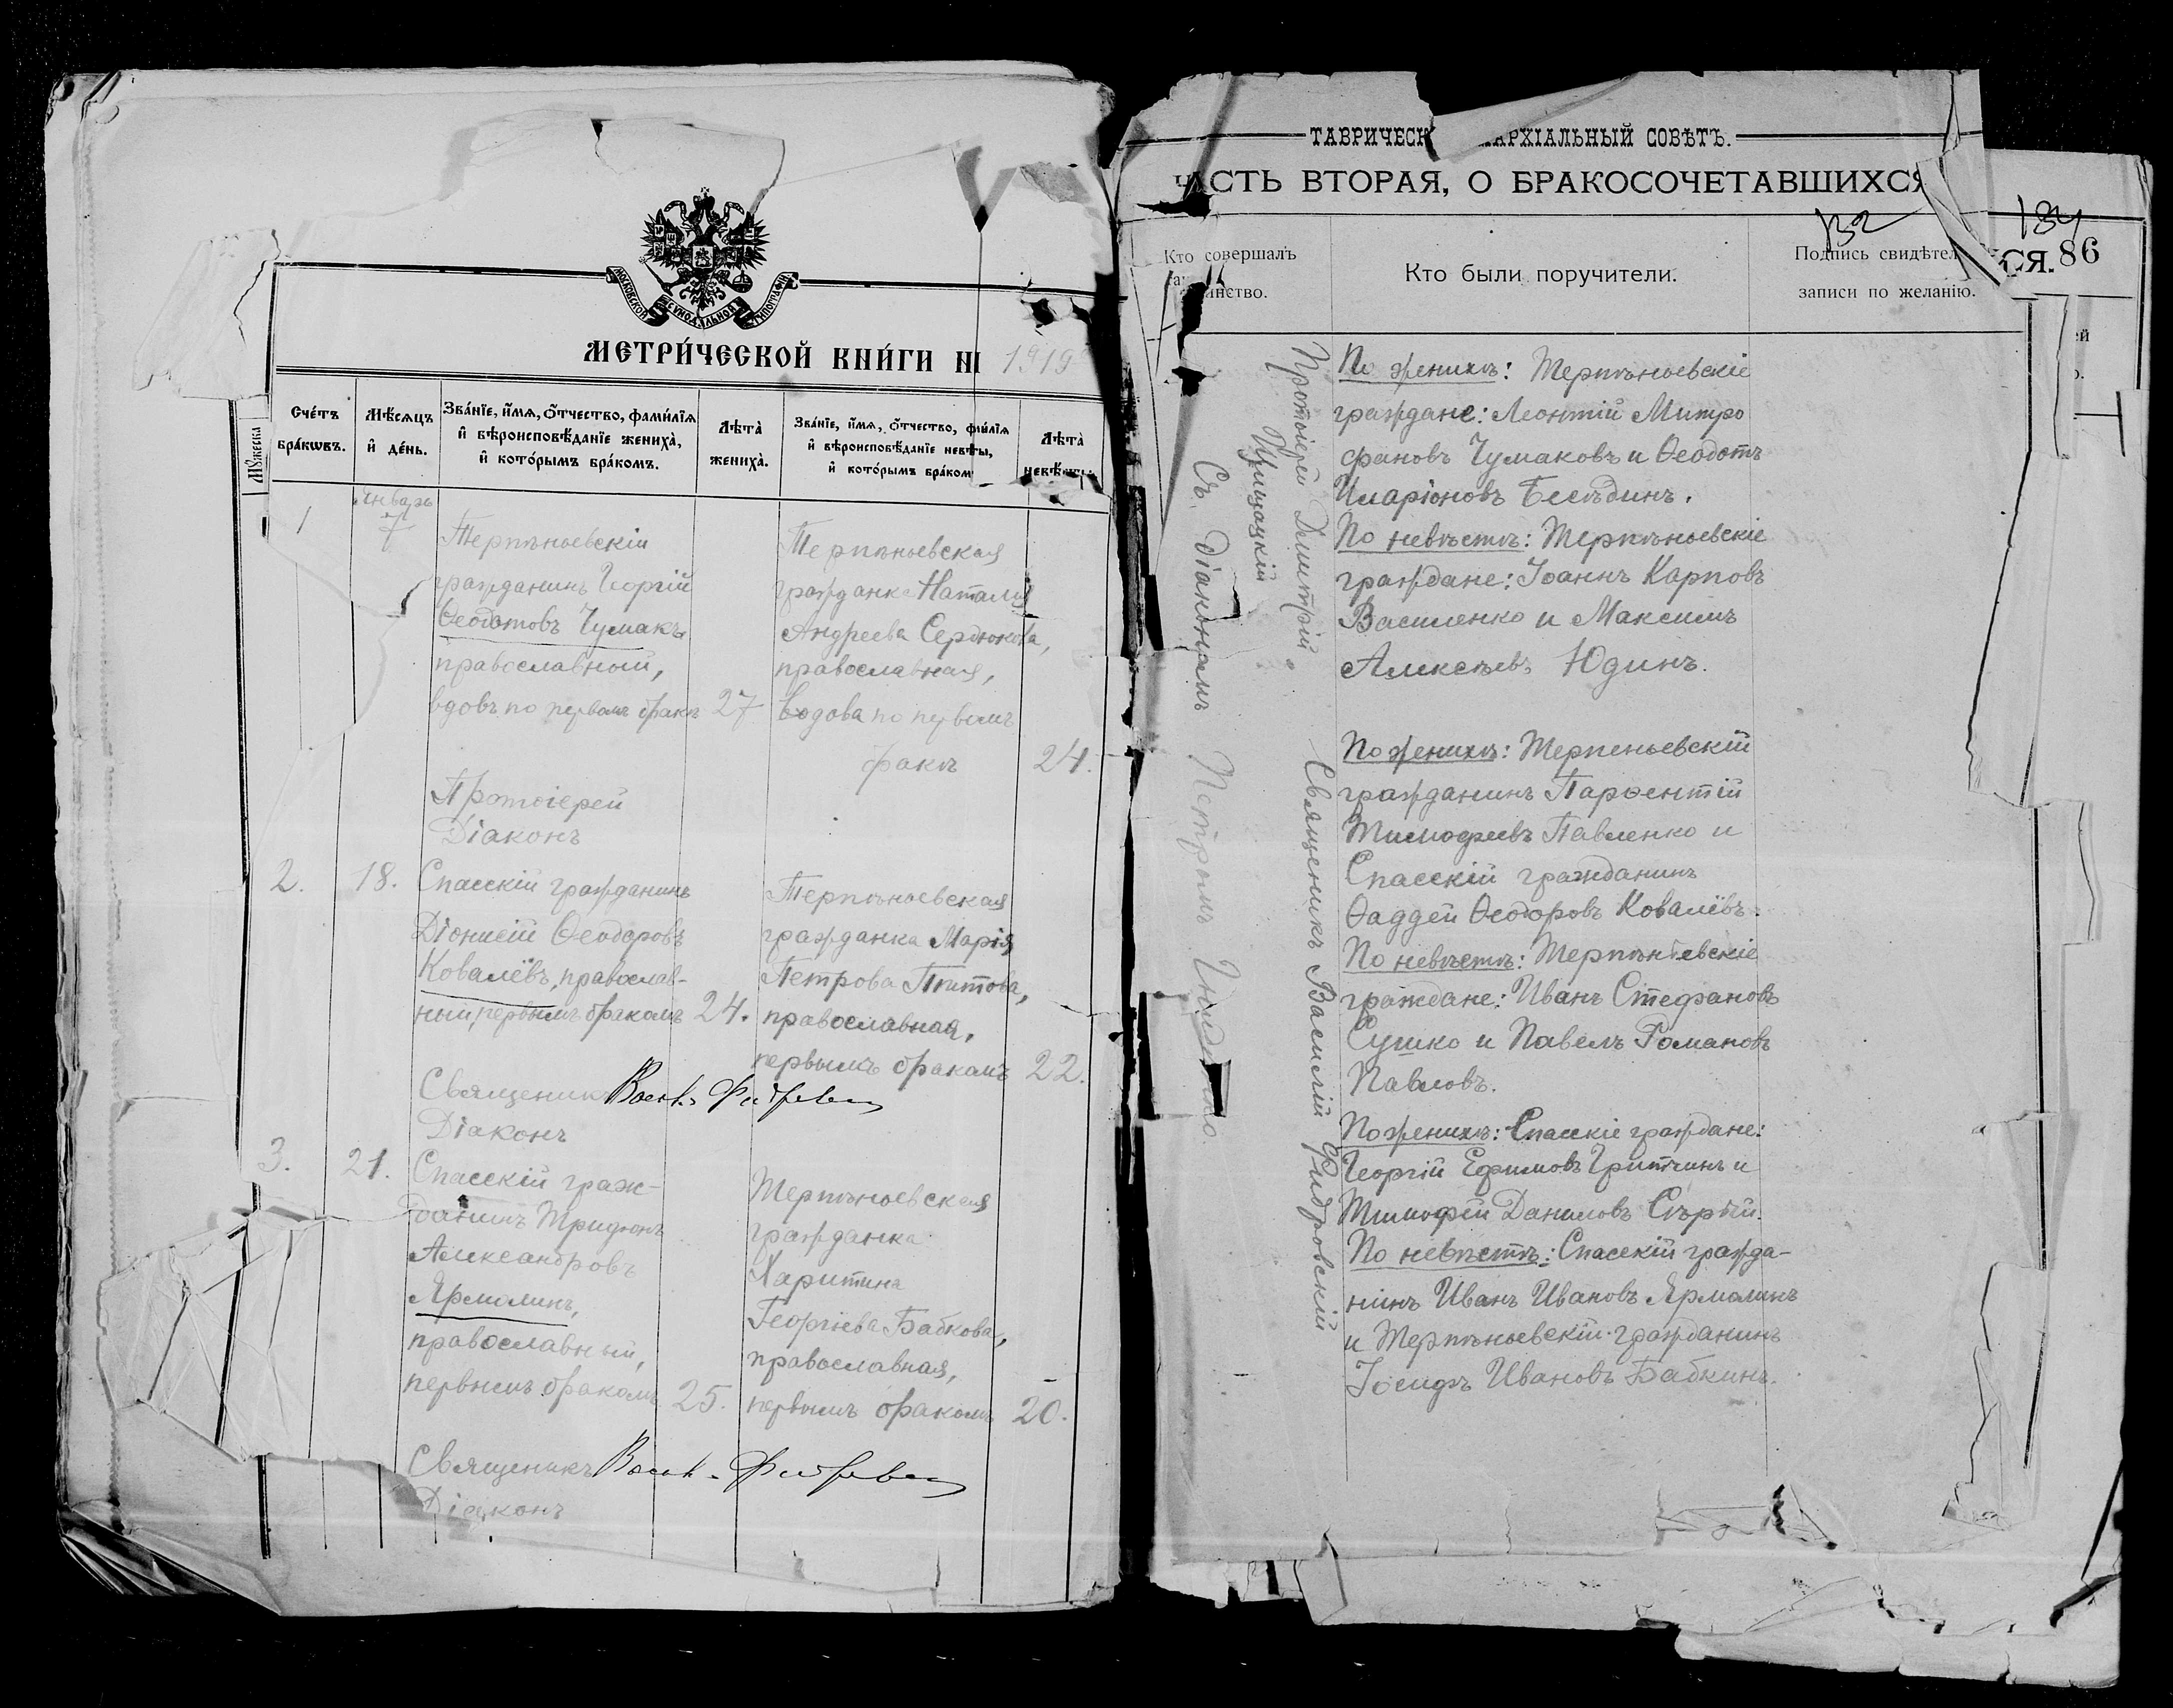 МОСКОВСКОЙ СѴНОДАЛЬНОЙ ТИПОГРАФІИ
МЕТРИ́ЧЕСКОЙ КНИ́ГИ НА 1919
Мꙋжеска
Сче́тъ бра́кѡвъ.
Мѣ́сяцъ и҆ де́нь.
Зва́нїе, и҆́мя, ѻ҆́тчество, фами́лїя
и҆ вѣроисповѣ́данїе жениха̀,
и҆ кото́рымъ бра́комъ.
Лѣта̀ жениха̀.
Зва́нїе, и҆́мя, ѻ҆́тчество, фами́лїя
и҆ вѣроисповѣ́данїе невѣ́сты,
и҆ кото́рымъ браком
Лѣта̀ невѣ́сты.
Январь
1 7
Терпѣньевскій
гражданинъ Георгій
Ѳеодотовъ Чумакъ,
православный,
вдовъ по первомъ бракѣ 27
Терпѣньевская
гражданка Наталія
Андреева Сердюкова,
православная,
вдова по первомъ
бракѣ 24.
Протоіерей
Діаконъ
2. 18. Спасскій гражданинъ
Діонисій Ѳеодоровъ
Ковалёвъ, православ-
ный, первымъ бракомъ 24.
Терпѣньевская
гражданка Марія
Петрова Титова,
православная,
первымъ бракомъ 22.
Священникъ
Діаконъ
3. 21. Спасскій граж-
данинъ Трифонъ
Александровъ
Ярмолинъ,
православный,
первымъ бракомъ 25.
Терпѣньевская
гражданка
Харитина
Георгіева Бабкова,
православная,
первымъ бракомъ 20.
Священникъ
Діаконъ
ТАВРИЧЕСК АРХІАЛЬНЫЙ СОВѢТЪ.
ЧАСТЬ ВТОРАЯ, О БРАКОСОЧЕТАВШИХСЯ
132
134
СЯ. 86
Кто совершалъ
таинство.
Кто были поручители.
Подпись свидѣтел
записи по желанію.
Протоіерей Димитрій
Съ діакономъ Петромъ
Священникъ Василій
По женихѣ: Терпѣньевскіе
граждане: Леонтій Митро
фановъ Чумаковъ и Ѳеодотъ
Иларіоновъ Бесѣдинъ.
По невѣстѣ: Терпѣньевскіе
граждане: Іоаннъ Карповъ
Василенко и Максимъ
Алексѣевъ Юдинъ.
По женихѣ: Терпеньевскій
гражданинъ Парѳентій
Тимофеевъ Павленко и
Спасскій гражданинъ
Ѳаддей Ѳеодоровъ Ковалёвъ.
По невѣстѣ: Терпѣньевскіе
граждане: Иванъ Стефановъ
Сушко и Павелъ Романовъ
Павловъ.
По женихѣ: Спасскіе граждане:
Георгій Ефимовъ Гритчинъ и
Тимофей Даниловъ Сѣрый.
По невѣстѣ: Спасскій гражда-
нинъ Иванъ Ивановъ Ярмолинъ
и Терпѣньевскій гражданинъ
Іосифъ Ивановъ Бабкинъ.